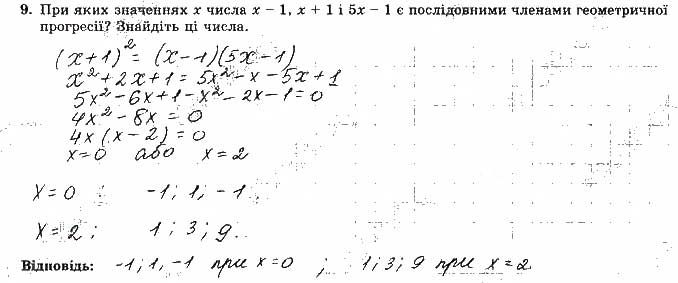 9. При яких значеннях x числа x − 1, x + 1 і 5x − 1 є послідовними членами геометричної
прогресії? Знайдіть ці числа.
(x+1)² = (x−1)(5x−1)
x² + 2x + 1 = 5x² − x − 5x + 1
5x² − 6x + 1 − x² − 2x − 1 = 0
4x² − 8x = 0
4x(x−2) = 0
x=0 або x=2
x=0 ; −1; 1; −1
x=2; 1; 3; 9.
Відповідь: −1; 1, −1 при x=0 ; 1; 3; 9 при x=2